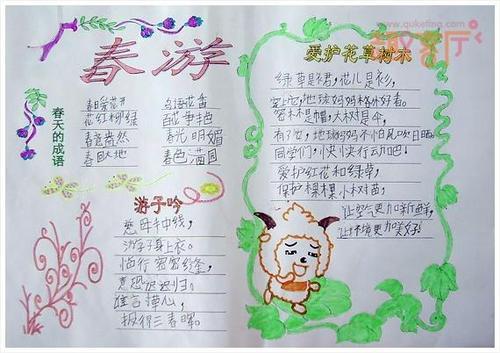 www.quketing.com
趣客厅
春游
春天的成语
春暖花开 鸟语花香
花红柳绿 百花争艳
春意盎然 春光明媚
春回大地 春色满园
游子吟
慈母手中线，
游子身上衣。
临行密密缝，
意恐迟迟归。
谁言寸草心，
报得三春晖。
爱护花草树木
绿草是裙，花儿是衫，
地球妈妈格外好看。
树木是帽，大树是伞，
有了它，地球妈妈不怕风吹日晒。
同学们，快快行动吧！
爱护红花和绿草，
保护棵棵小树苗，
让空气更加新鲜，
让环境更加美好！